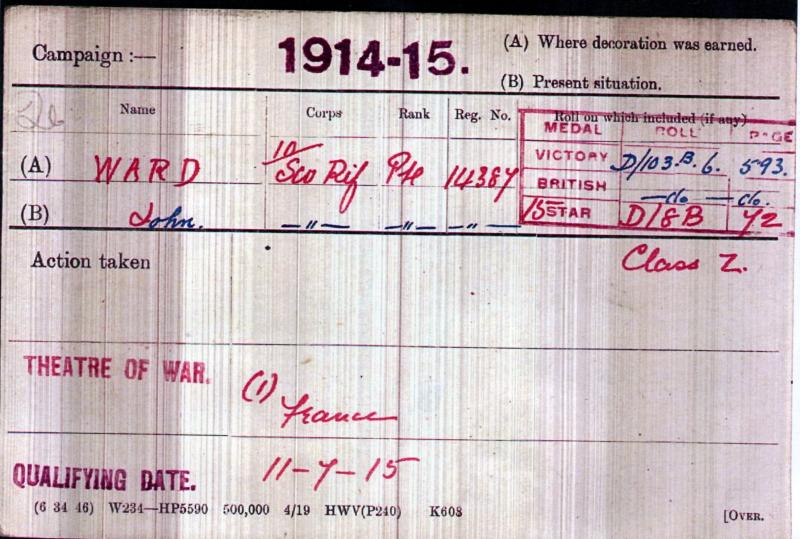 Campaign :— 1914-15. (A) Where decoration was earned.
(B) Present situation.
Name Corps Rank Reg. No. Roll on which included (if any)
MEDAL ROLL PAGE
(A) WARD 10/Sco Rif Pte 14387 VICTORY D/103.B.6. 593.
BRITISH —do— —do.
(B) John. —"— —"— —"— 15 STAR D/8B 72
Action taken Class Z.
THEATRE OF WAR. (1) France
QUALIFYING DATE. 11-7-15
(6 34 46) W234—HP5590 500,000 4/19 HWV(P240) K608 [OVER.